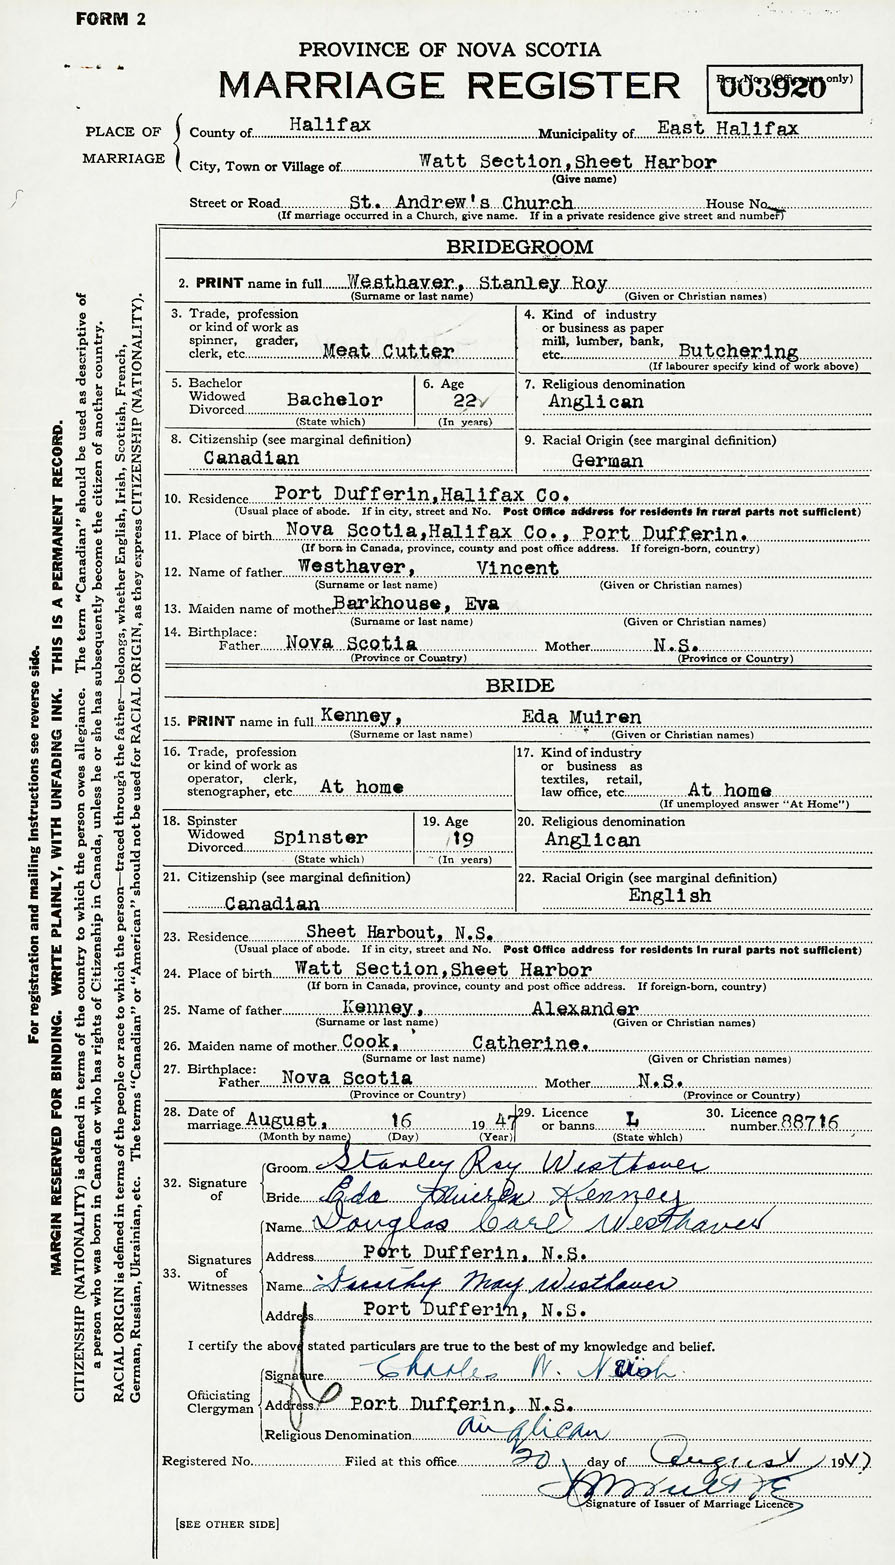 FORM 2
PROVINCE OF NOVA SCOTIA
MARRIAGE REGISTER
Reg. No. (Office use only)
003920
PLACE OF MARRIAGE
County of Halifax Municipality of East Halifax
City, Town or Village of Watt Section, Sheet Harbor
(Give name)
Street or Road St. Andrew's Church House No.
(If marriage occurred in a Church, give name. If in a private residence give street and number)
BRIDEGROOM
2. PRINT name in full Westhaver, Stanley Roy
(Surname or last name) (Given or Christian names)
3. Trade, profession
or kind of work as
spinner, grader,
clerk, etc. Meat Cutter
4. Kind of industry
or business as paper
mill, lumber, bank,
etc. Butchering
(If labourer specify kind of work above)
5. Bachelor
Widowed
Divorced Bachelor
(State which)
6. Age
22
(In years)
7. Religious denomination
Anglican
8. Citizenship (see marginal definition)
Canadian
9. Racial Origin (see marginal definition)
German
10. Residence Port Dufferin, Halifax Co.
(Usual place of abode. If in city, street and No. Post Office address for residents in rural parts not sufficient)
11. Place of birth Nova Scotia, Halifax Co., Port Dufferin.
(If born in Canada, province, county and post office address. If foreign-born, country)
12. Name of father Westhaver, Vincent
(Surname or last name) (Given or Christian names)
13. Maiden name of mother Barkhouse, Eva
(Surname or last name) (Given or Christian names)
14. Birthplace:
Father Nova Scotia Mother N.S.
(Province or Country) (Province or Country)
BRIDE
15. PRINT name in full Kenney, Eda Muiren
(Surname or last name) (Given or Christian names)
16. Trade, profession
or kind of work as
operator, clerk,
stenographer, etc. At home
17. Kind of industry
or business as
textiles, retail,
law office, etc. At home
(If unemployed answer "At Home")
18. Spinster
Widowed
Divorced Spinster
(State which)
19. Age
19
(In years)
20. Religious denomination
Anglican
21. Citizenship (see marginal definition)
Canadian
22. Racial Origin (see marginal definition)
English
23. Residence Sheet Harbout, N.S.
(Usual place of abode. If in city, street and No. Post Office address for residents in rural parts not sufficient)
24. Place of birth Watt Section, Sheet Harbor
(If born in Canada, province, county and post office address. If foreign-born, country)
25. Name of father Kenney, Alexander
(Surname or last name) (Given or Christian names)
26. Maiden name of mother Cook, Catherine.
(Surname or last name) (Given or Christian names)
27. Birthplace:
Father Nova Scotia Mother N.S.
(Province or Country) (Province or Country)
28. Date of
marriage August, 16 1947
(Month by name) (Day) (Year)
29. Licence
or banns L
(State which)
30. Licence
number 88716
32. Signature of
Groom Stanley Roy Westhaver
Bride Eda Muiren Kenney
33. Signatures of Witnesses
Name Douglas Carl Westhaver
Address Port Dufferin, N.S.
Name Dorothy May Westhaver
Address Port Dufferin, N.S.
I certify the above stated particulars are true to the best of my knowledge and belief.
Officiating Clergyman
Signature Charles W.
Address Port Dufferin, N.S.
Religious Denomination Anglican
Registered No. Filed at this office 20 day of August 1947
Signature of Issuer of Marriage Licence
[SEE OTHER SIDE]
For registration and mailing instructions see reverse side.
MARGIN RESERVED FOR BINDING. WRITE PLAINLY, WITH UNFADING INK. THIS IS A PERMANENT RECORD.
CITIZENSHIP (NATIONALITY) is defined in terms of the country to which the person owes allegiance. The term "Canadian" should be used as descriptive of
a person who was born in Canada or who has rights of Citizenship in Canada, unless he or she has subsequently become the citizen of another country.
RACIAL ORIGIN is defined in terms of the people or race to which the person—traced through the father—belongs, whether English, Irish, Scottish, French,
German, Russian, Ukrainian, etc. The terms "Canadian" or "American" should not be used for RACIAL ORIGIN, as they express CITIZENSHIP (NATIONALITY).